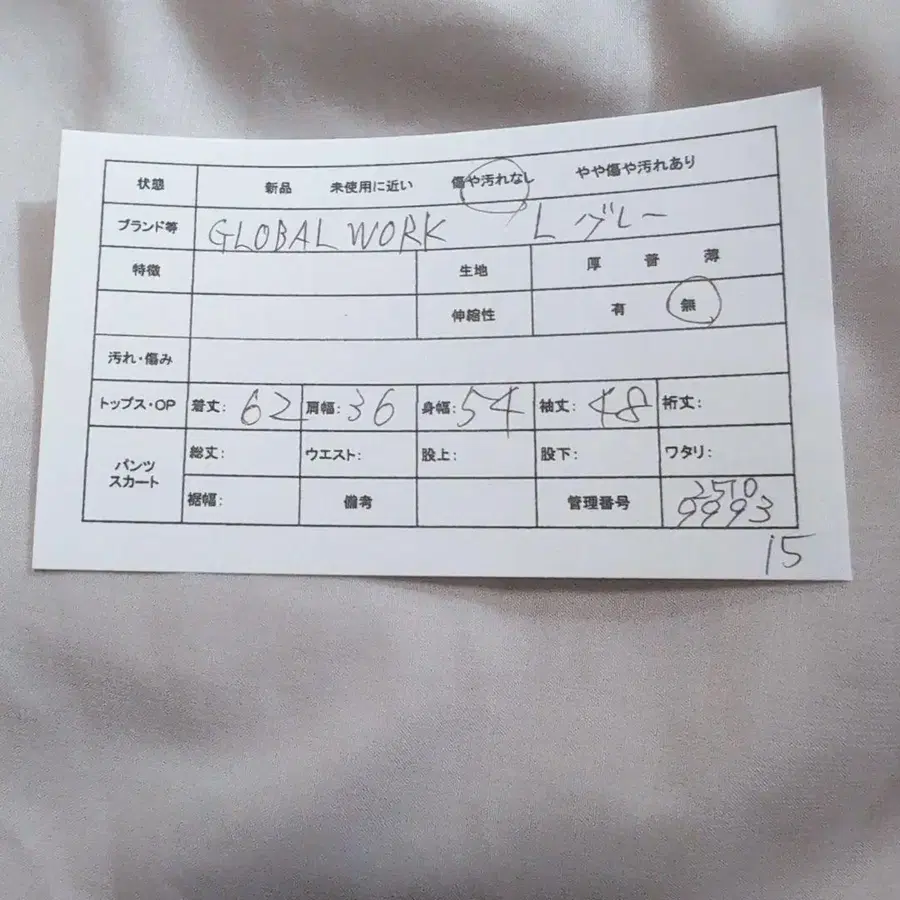 状態 新品 未使用に近い 傷や汚れなし やや傷や汚れあり
ブランド等 GLOBAL WORK L グレー
特徴 生地 厚 普 薄
伸縮性 有 無
汚れ・傷み
トップス・OP 着丈: 62 肩幅: 36 身幅: 54 袖丈: 48 裄丈:
パンツ 総丈: ウエスト: 股上: 股下: ワタリ:
スカート
裾幅: 備考 管理番号 2510
9993
15